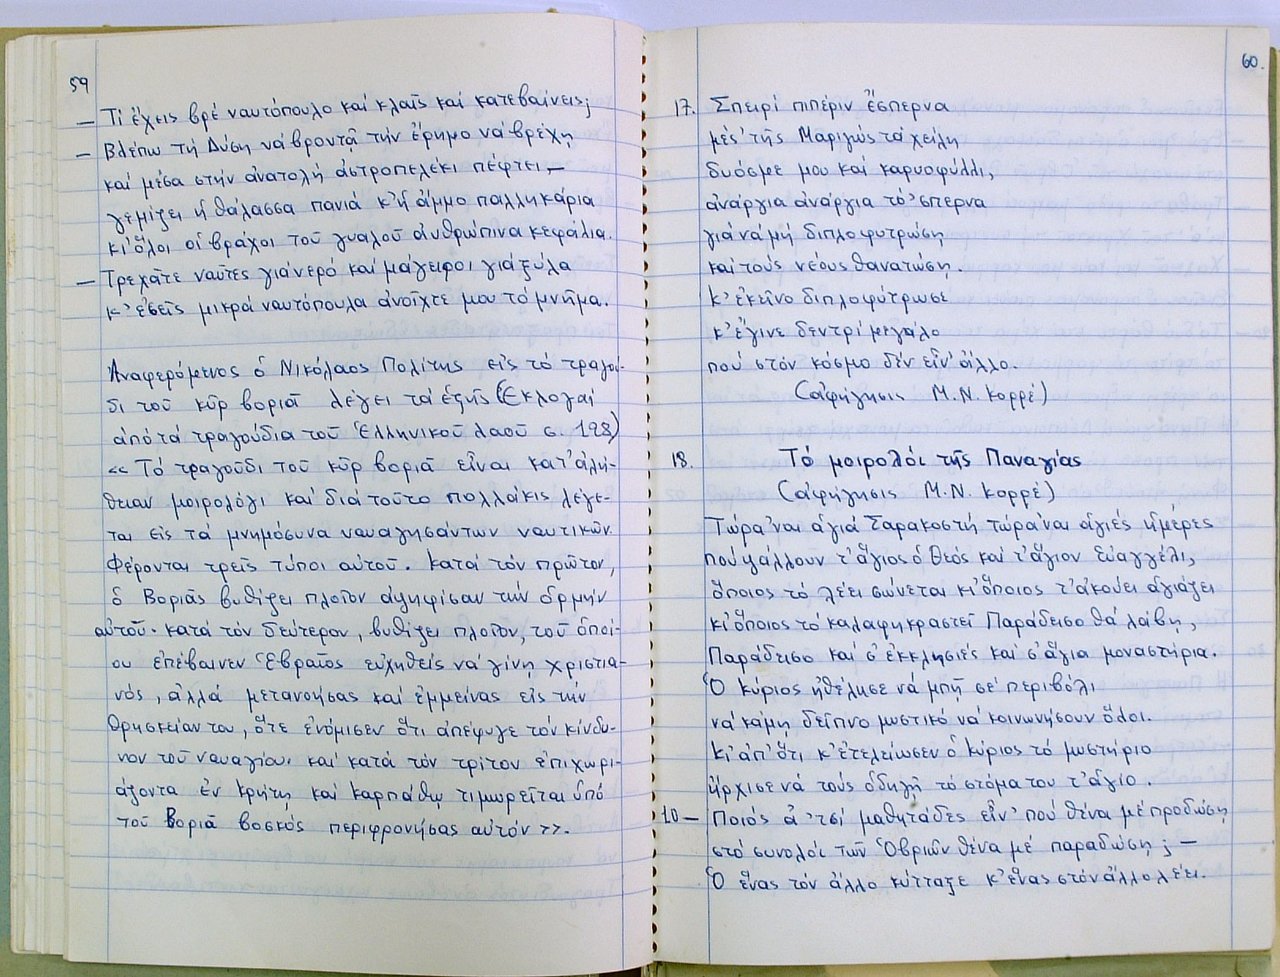 59
— Τί ἔχεις βρέ ναυτόπουλο καί κλαῖς καί κατεβαίνεις;
— Βλέπω τή Δύση νά βροντᾷ τήν ἔρημο νά βρέχῃ
καί μέσα στήν ἀνατολή ἀστροπελέκι πέφτει —
γεμίζει ἡ θάλασσα πανιά κ' ἡ ἄμμο παλληκάρια
κι' ὅλοι οἱ βράχοι τοῦ γυαλοῦ ἀνθρώπινα κεφάλια.
— Τρεχᾶτε ναῦτες γιά νερό καί μάγειροι γιά ξύλα
κ' ἐσεῖς μικρά ναυτόπουλα ἀνοῖχτε μου τό μνῆμα.
Ἀναφερόμενος ὁ Νικόλαος Πολίτης εἰς τό τραγού-
δι τοῦ κῦρ βοριᾶ λέγει τά ἑξῆς (Ἐκλογαί
ἀπό τά τραγούδια τοῦ Ἑλληνικοῦ λαοῦ σ. 128)
«Τό τραγοῦδι τοῦ κῦρ βοριᾶ εἶναι κατ' ἀλή-
θειαν μοιρολόγι καί διά τοῦτο πολλάκις λέγε-
ται εἰς τά μνημόσυνα ναυαγησάντων ναυτικῶν.
Φέρονται τρεῖς τύποι αὐτοῦ. Κατά τόν πρῶτον,
ὁ Βοριᾶς βυθίζει πλοῖον ἀψηφίσαν τήν ὁρμήν
αὐτοῦ· κατά τόν δεύτερον, βυθίζει πλοῖον, τοῦ ὁποί-
ου ἐπέβαινεν Ἑβραῖος εὐχηθείς νά γίνῃ χριστια-
νός, ἀλλά μετανοήσας καί ἐμμείνας εἰς τήν
θρησκείαν του, ὅτε ἐνόμισεν ὅτι ἀπέφυγε τόν κίνδυ-
νον τοῦ ναυαγίου. καί κατά τόν τρίτον ἐπιχωρι-
άζοντα ἐν Κρήτῃ καί Καρπάθῳ τιμωρεῖται ὑπό
τοῦ Βοριᾶ βοσκός περιφρονήσας αὐτόν».
60.
17. Σπειρί πιπέριν ἔσπερνα
μέσ' τῆς Μαριγῶς τά χείλη
δυόσμε μου καί καρυοφύλλι,
ἀνάργια ἀνάργια τό 'σπερνα
γιά νά μή διπλοφυτρώσῃ
καί τούς νέους θανατώσῃ.
κ' ἐκεῖνο διπλοφύτρωσε
κ' ἔγινε δεντρί μεγάλο
πού στόν κόσμο δέν εἶν' ἄλλο.
(ἀφήγησις Μ.Ν. Κορρέ)
18. Τό μοιρολόι τῆς Παναγίας
(ἀφήγησις Μ.Ν. Κορρέ)
Τώρα 'ναι ἁγιά Σαρακοστή τώρα 'ναι ἁγιές ἡμέρες
πού ψάλλουν τ' ἅγιος ὁ Θεός καί τ' ἅγιον Εὐαγγέλι,
ὅποιος τό λέει σώνεται κι' ὅποιος τ' ἀκούει ἁγιάζει
κι' ὅποιος τό καλαφηκραστεῖ Παράδεισο θά λάβῃ,
Παράδεισο καί σ' ἐκκλησιές καί σ' ἅγια μοναστήρια.
Ὁ κύριος ἠθέλησε νά μπῇ σέ περιβόλι
νά κάμῃ δεῖπνο μυστικό νά κοινωνήσουν ὅλοι.
Κι' ἀπ' ὅτι κ' ἐτελείωσεν ὁ κύριος τό μυστήριο
ἤρχισε νά τούς ὁδηγῇ τό στόμα του τ' ἅγιο.
10 — Ποιός ἀ 'τσί μαθητάδες εἶν' πού θένα μέ προδώσῃ
στό συνολόι τῶν Ὁβριῶν θένα μέ παραδώσῃ; —
Ὁ ἕνας τόν ἄλλο κύτταξε κ' ἕνας στόν ἄλλο λέει.